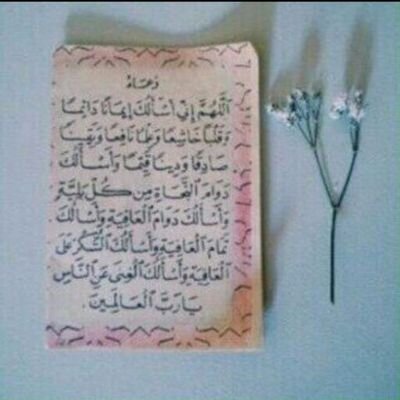 دُعَاءٌ
اَللّٰهُمَّ إِنِّي أَسْأَلُكَ إِيمَانًا دَائِمًا
وَقَلْبًا خَاشِعًا وَعِلْمًا نَافِعًا وَيَقِينًا
صَادِقًا وَدِينًا قَيِّمًا وَأَسْأَلُكَ
دَوَامَ النَّجَاةِ مِن كُلِّ بَلِيَّةٍ
وَأَسْأَلُكَ دَوَامَ الْعَافِيَةِ وَأَسْأَلُكَ
تَمَامَ الْعَافِيَةِ وَأَسْأَلُكَ الشُّكْرَ عَلَى
الْعَافِيَةِ وَأَسْأَلُكَ الْغِنَى عَنِ النَّاسِ
يَارَبَّ الْعَالَمِينَ.